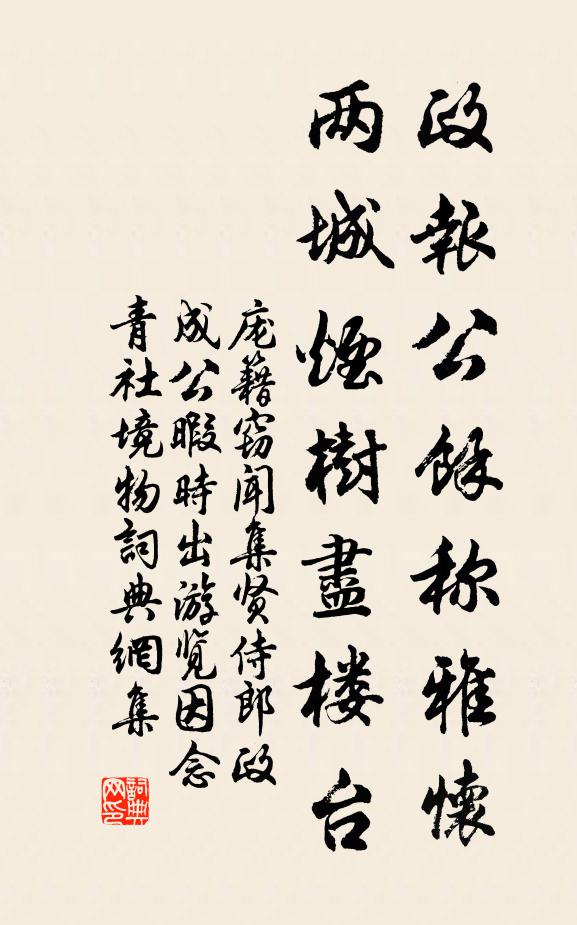 政報公餘称雅懷
两城煙樹盡楼台
庞籍窃闻集贤侍郎政
成公暇時出游览因念
青社境物詞典網集
詞典网印